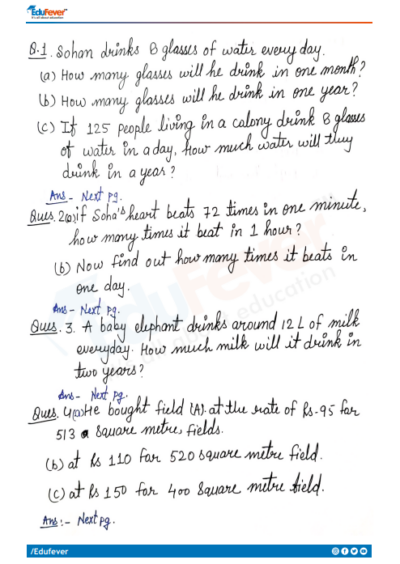 EduFever
Q.1. Sohan drinks 8 glasses of water every day.
(a) How many glasses will he drink in one month?
(b) How many glasses will he drink in one year?
(c) If 125 people living in a calony drink 8 glasses
of water in a day. How much water will they
drink in a year?
Ans - Next pg.
Ques. 2(a) if Soha's heart beats 72 times in one minute,
how many times it beat in 1 hour?
(b) Now find out how many times it beats in
one day.
Ans - Next pg.
Ques. 3. A baby elephant drinks around 12 L of milk
everyday. How much milk will it drink in
two years?
Ans - Next pg.
Ques. 4(a) He bought field (A). at the rate of Rs-95 for
513 square metre, fields.
(b) at Rs 110 for 520 square metre field.
(c) at Rs 150 for 400 square metre field.
Ans :- Next pg.
EduFever
all about education
/Edufever